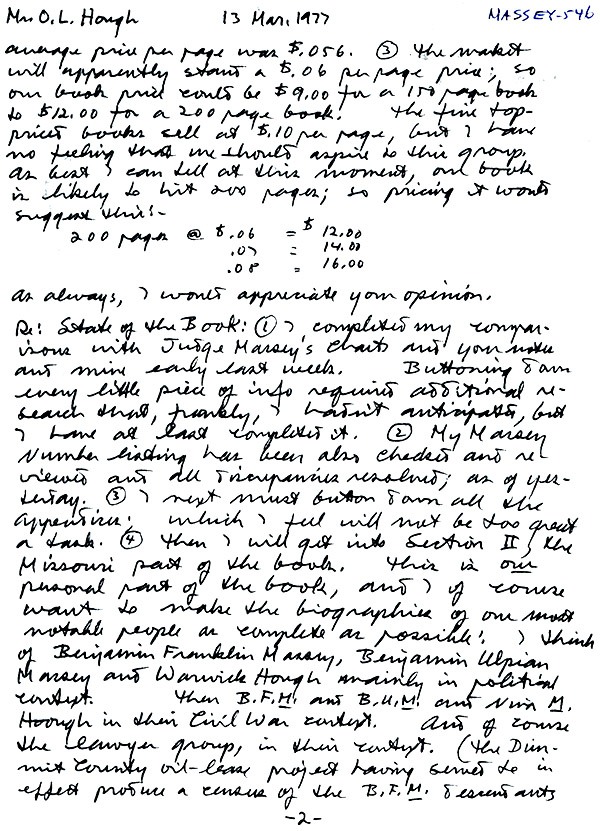 Mrs O.L. Hough 13 Mar. 1977 MASSEY-546
average price per page was $.056. ③ The market
will apparently stand a $.06 per page price; so
our book price could be $9.00 for a 150 page book
to $12.00 for a 200 page book. The fine top-
priced books sell at $.10 per page, but I have
no feeling that we should aspire to this group.
As best I can tell at this moment, our book
is likely to hit 200 pages; so pricing it would
suggest this:-
200 pages @ $.06 = $12.00
.07 = 14.00
.08 = 16.00
As always, I would appreciate your opinion.
Re: State of the Book: ① I completed my compar-
isons with Judge Massey's charts and your notes
and mine early last week. Buttoning down
every little piece of info required additional re-
search that, frankly, I hadn't anticipated, but
I have at last completed it. ② My Massey
Number listing has been also checked and re-
viewed and all discrepancies resolved; as of yes-
terday. ③ I next must button down all the
appendixes; which I feel will not be too great
a task. ④ Then I will get into Section II, the
Missouri part of the book. This is our
personal part of the book, and I of course
want to make the biographies of our most
notable people as complete as possible; I think
of Benjamin Franklin Massey, Benjamin Ulpian
Massey and Warwick Hough mainly in political
context. Then B.F.M. and B.U.M. and Nina M.
Hoough in their Civil War context. And of course
the lawyer group, in their context. (The Dim-
mit County oil-lease project having served to in
effect produce a census of the B.F.M. descendants
-2-